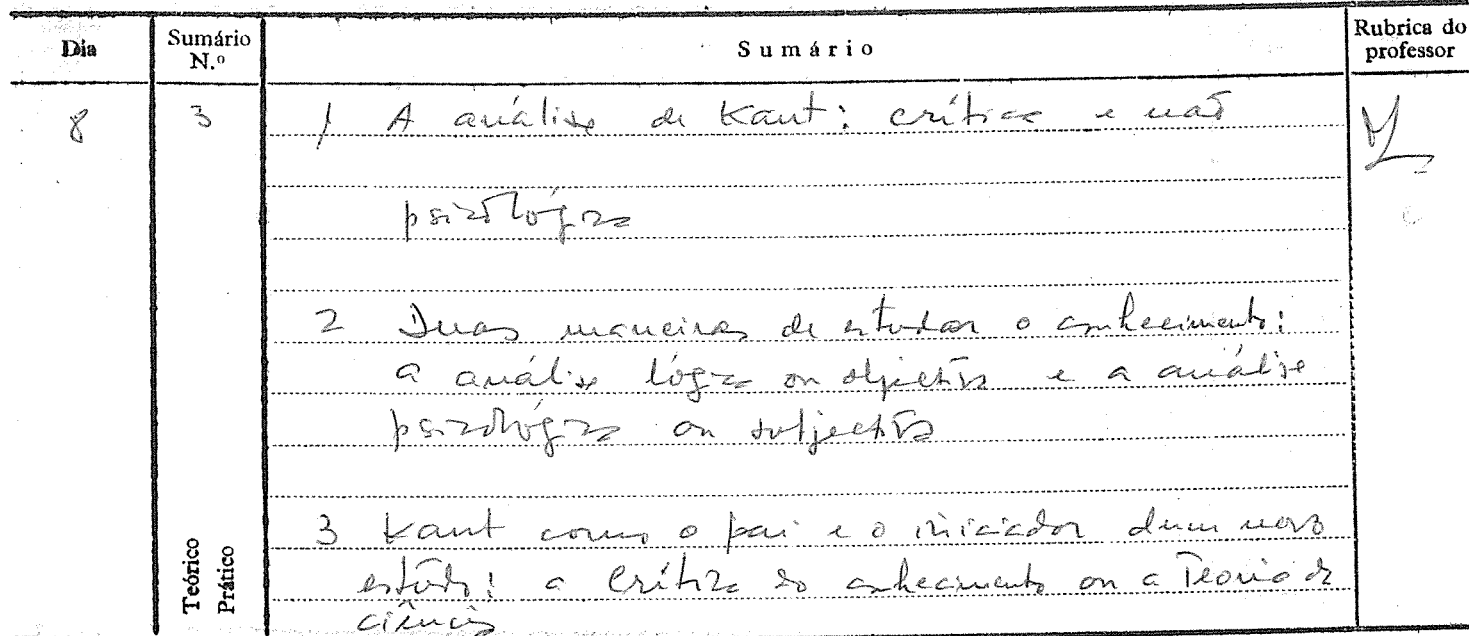 Dia
Sumário
N.º
Sumário
Rubrica do
professor
8
3
1 A análise de Kant: crítica e não
psicológica
2 Duas maneiras de estudar o conhecimento:
a análise lógica ou objectiva e a análise
psicológica ou subjectiva
3 Kant como o pai e o iniciador dum novo
estudo: a Crítica do conhecimento ou a Teoria da
ciência
Teórico
Prático